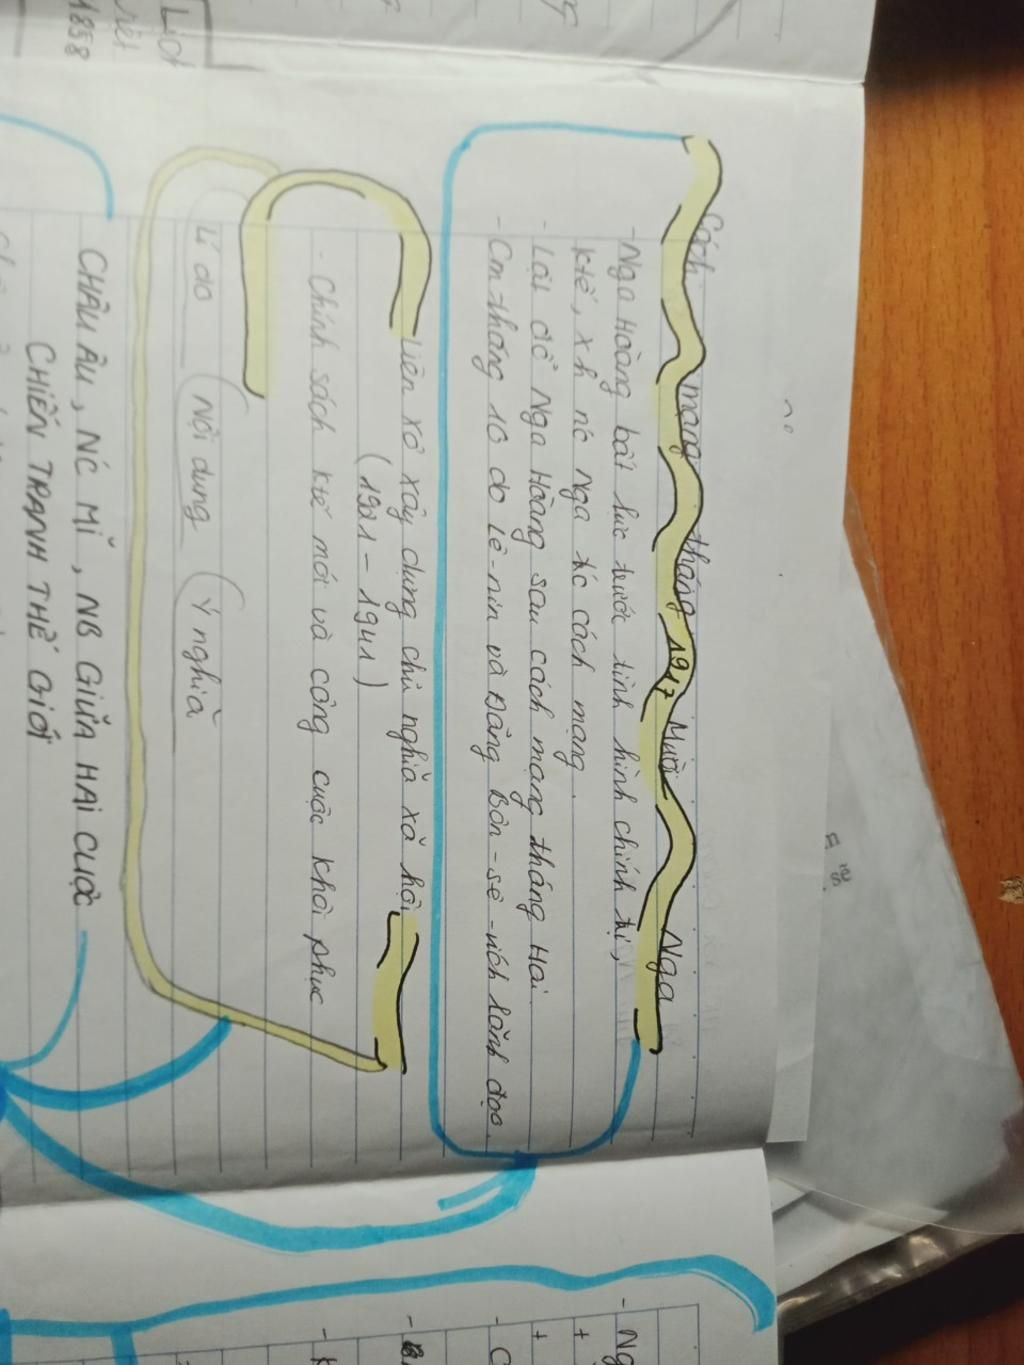 Cách mạng tháng 1917 Mười Nga
- Nga Hoàng bất lực trước tình hình chính trị,
ktế, xh nc Nga tc cách mạng.
- Lật đổ Nga Hoàng sau cách mạng tháng Hai.
- Cm tháng 10 do Lê-nin và Đảng Bôn-sê-vích lãnh đạo.
Liên Xô xây dựng chủ nghĩa xã hội
(1921 - 1941)
- Chính sách ktế mới và công cuộc khôi phục
Lí do Nội dung Ý nghĩa
CHÂU ÂU, NC MĨ, NB GIỮA HAI CUỘC
CHIẾN TRANH THẾ GIỚI
Lịch
Việt
1858
- Ng
+
+
- C